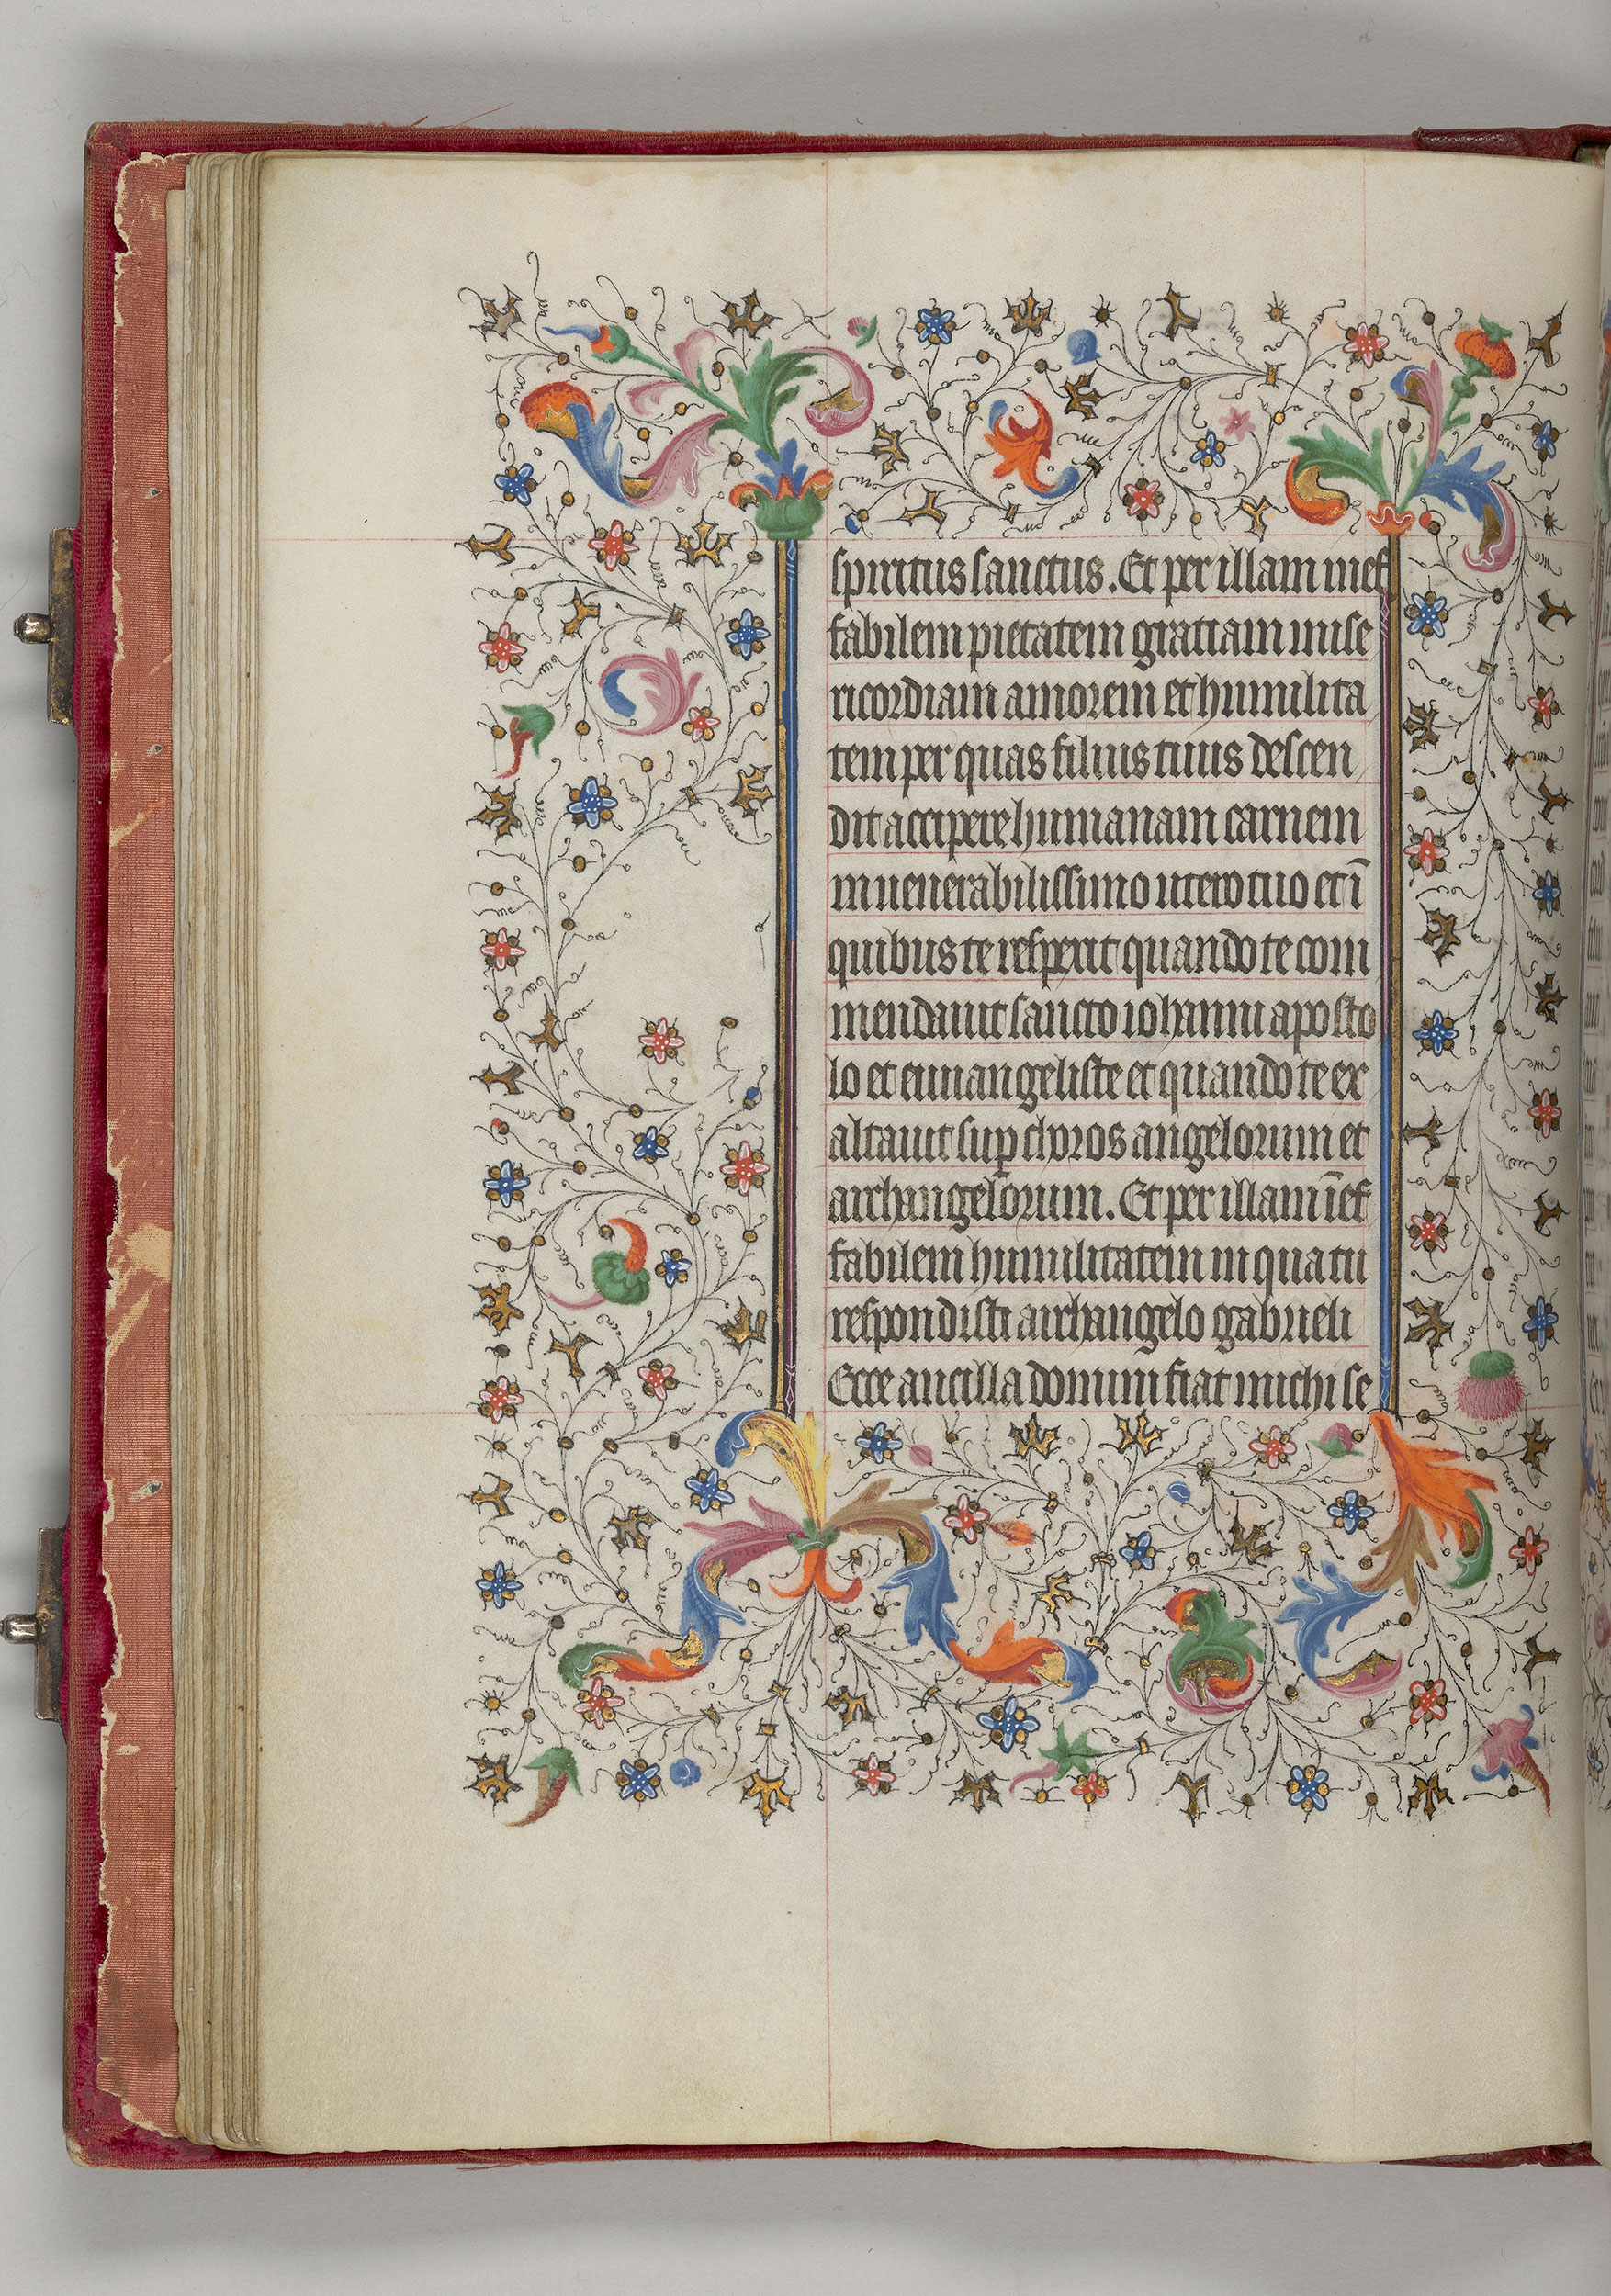 spiritus sanctus. Et per illam inef
fabilem pietatem gratiam mise
ricordiam amorem et humilita
tem per quas filius tuus descen
dit accipere humanam carnem
in uenerabilissimo utero tuo et ī
quibus te respexit quando te com
mendauit sancto iohanni aposto
lo et euuangeliste et quando te ex
altauit sup̱ choros angelorum et
archangelorum. Et per illam īef
fabilem humilitatem in qua tu
respondisti archangelo gabrieli
Ecce ancilla domini fiat michi se